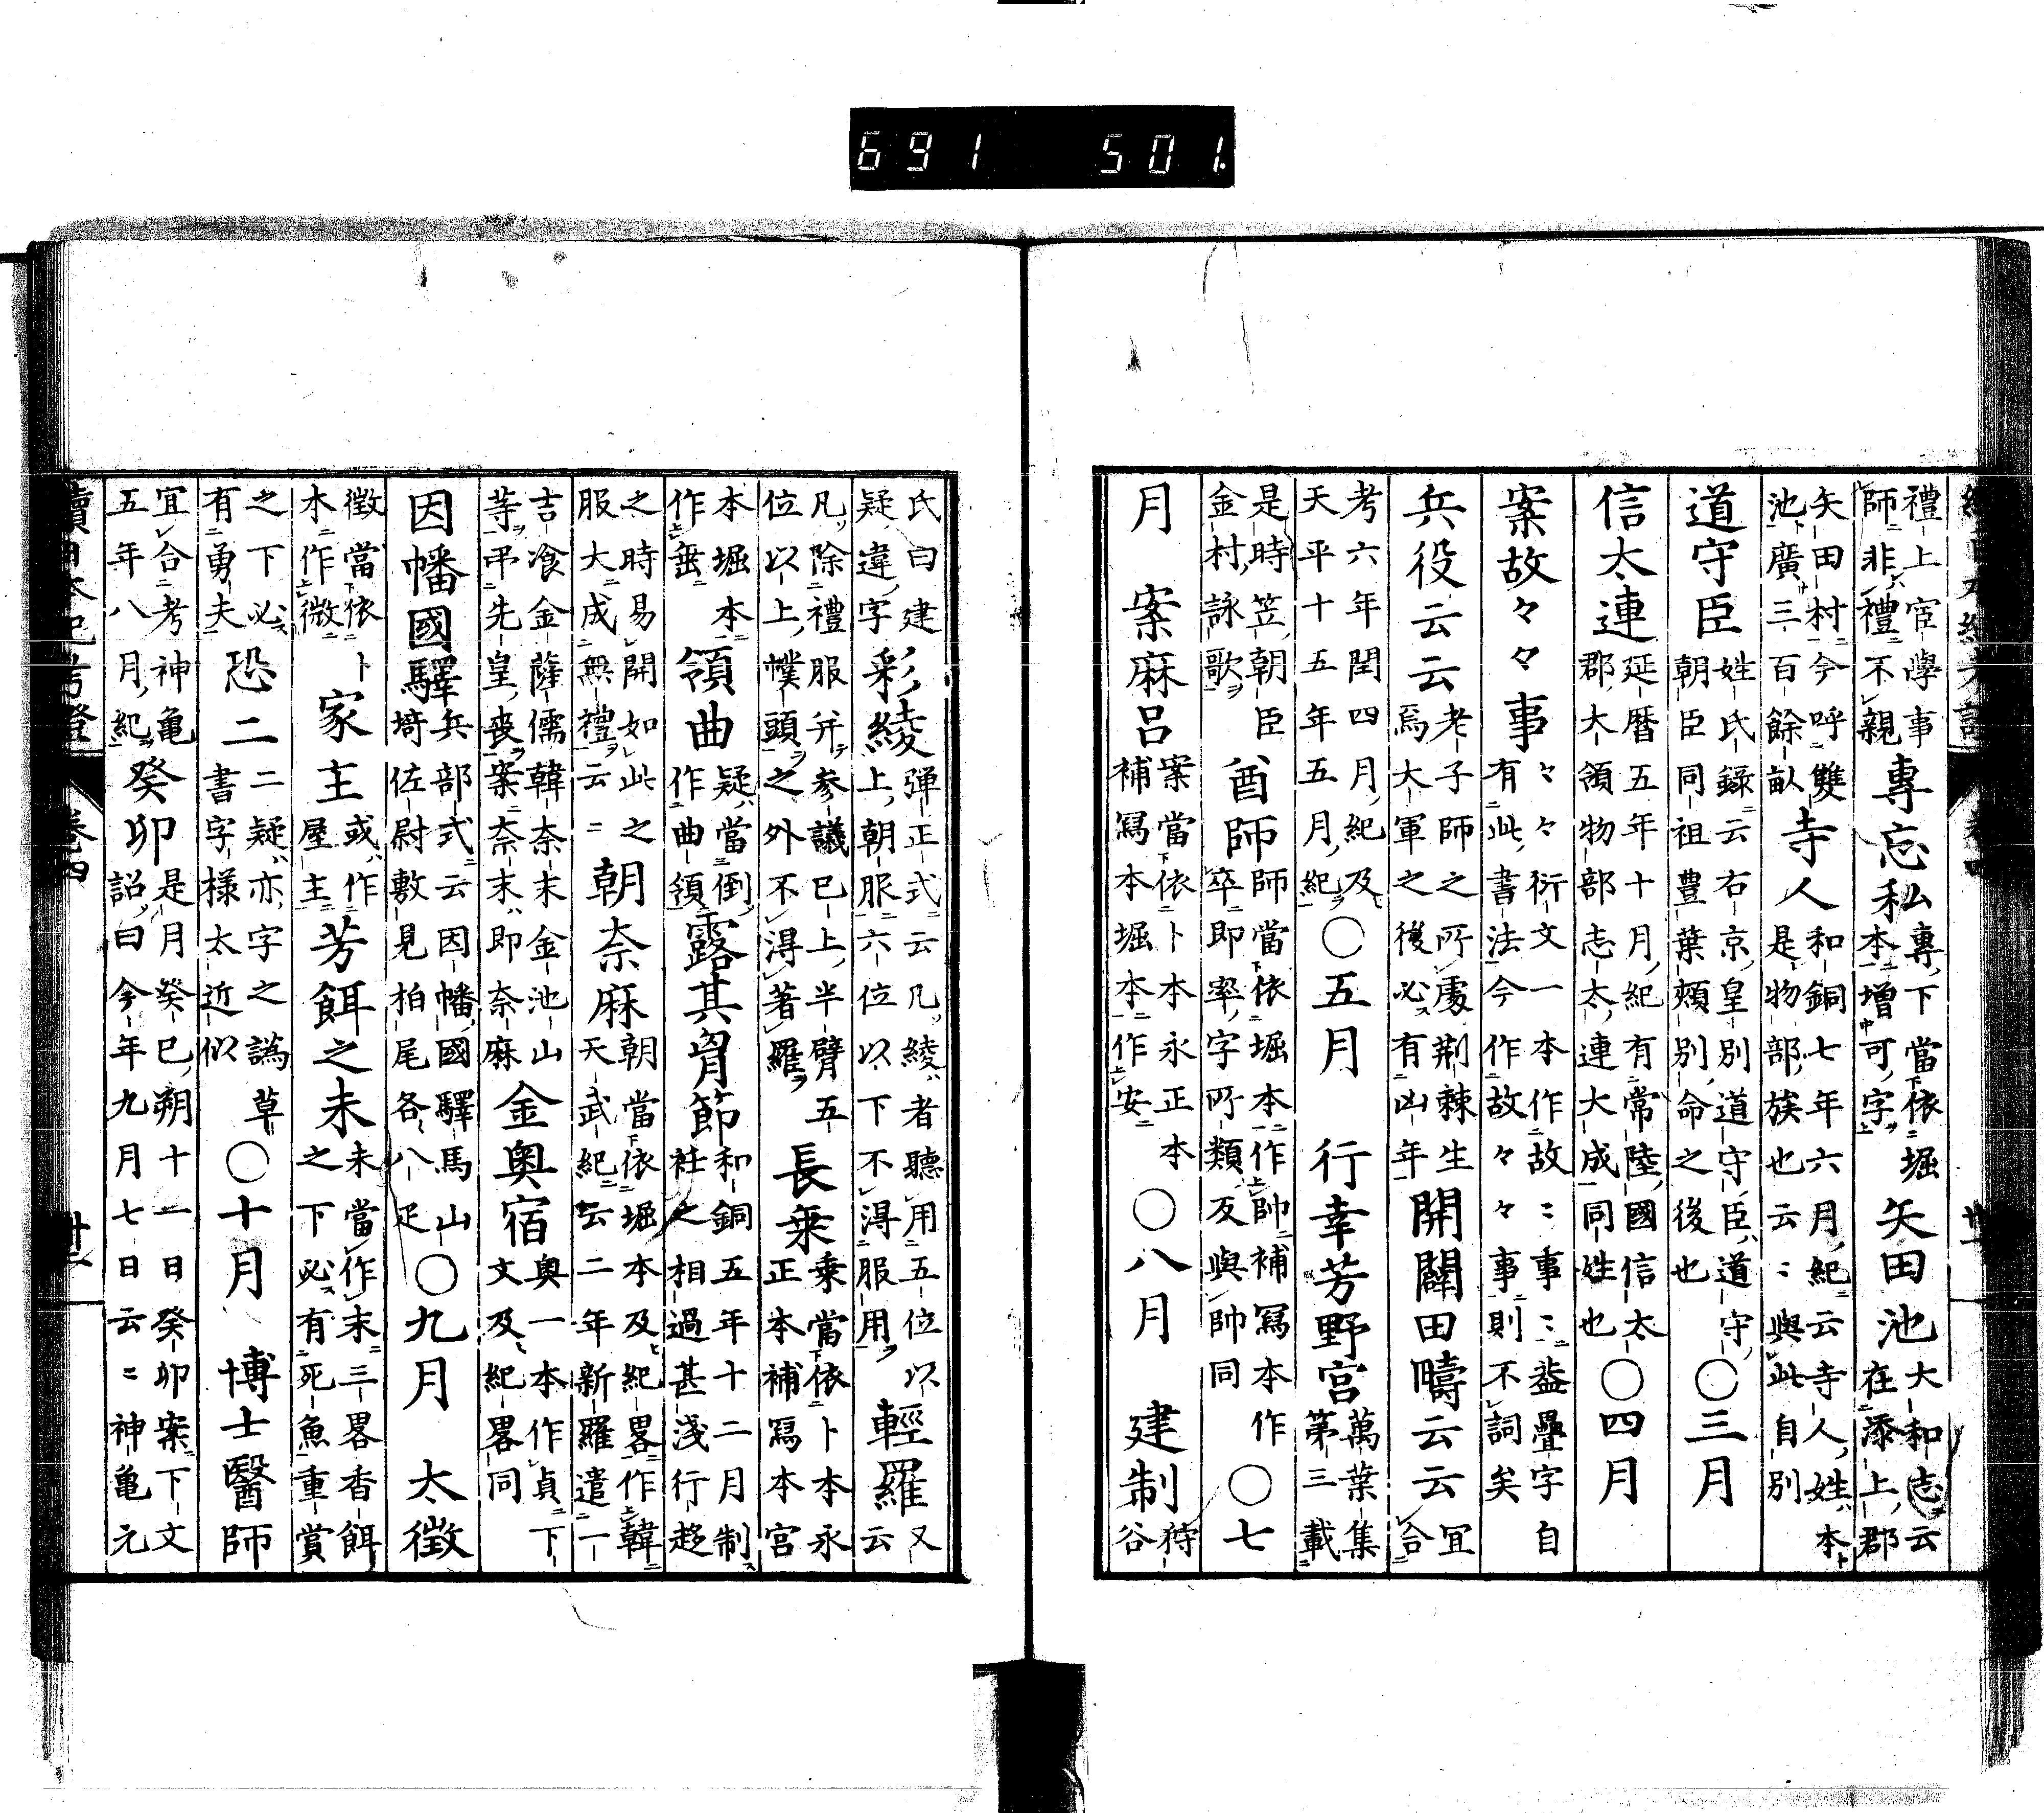 691 501
禮上宦學事
師非禮不親
專忘私
專下當依堀
本増可字
矢田池
大和志云
在添上郡
矢田村今呼雙
池廣三百餘畝
寺人
和銅七年六月紀云寺人姓本
是物部族也云〻與此自別
道守臣
姓氏録云右京皇別道守臣道守
朝臣同祖豊葉頰別命之後也
○三月
信太連
延暦五年十月紀有常陸國信太
郡大領物部志太連大成同姓也
○四月
案故々々事
々々衍文一本作故〻事〻盖疊字自
有此書法今作故々々事則不詞矣
兵役云云
老子師之所處荆棘生
焉大軍之後必有凶年
開闢田疇云云
宜
合
考六年閏四月紀及
天平十五年五月紀
○五月 行幸芳野宮
萬葉集
第三載
是時笠朝臣
金村詠歌
酋師
師當依堀本作帥補寫本作
卒即率字所類及與帥同
○七
月 案麻呂
案當依卜本永正本
補寫本堀本作安
○八月 建制
狩
谷
氏曰建
疑違字
彩綾
弾正式云凡綾者聽用五位以
上朝服六位以下不得服用
輕羅
又
云
凡除禮服并参議已上半臂五
位以上幞頭之外不得著羅
長乗
乗當依卜本永
正本補寫本宮
本堀本
作垂
領曲
疑當倒
作曲領
露其胷節
和銅五年十二月制
衽之相過甚淺行趍
之時易開如此之
服大成無禮云〻
朝奈麻
朝當依堀本及紀畧作韓
天武紀云二年新羅遣一
吉飡金薩儒韓奈末金池山
等弔先皇喪案奈末即奈麻
金奥宿
奥一本作貞下
文及紀畧同
因幡國驛
兵部式云因幡國驛馬山
埼佐尉敷見柏尾各八疋
○九月 太徴
徴當依卜
本作微
家主
或作
屋主
芳餌之未
未當作末三畧香餌
之下必有死魚重賞
之下必
有勇夫
恐二
二疑亦字之譌草
書字様太近似
○十月 博士醫師
宜合考神亀
五年八月紀
癸卯
是月癸巳朔十一日癸卯案下文
詔曰今年九月七日云〻神亀元
續日本紀考證 卷四